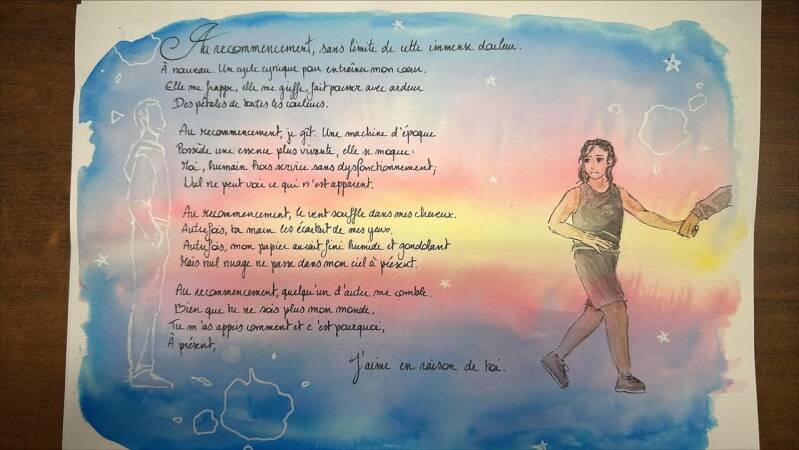 Au recommencement, sans limite de cette immense douleur.
À nouveau. Un cycle cynique pour entraîner mon cœur.
Elle me frappe, elle me griffe, fait pousser avec ardeur
Des pétales de toutes les couleurs.
Au recommencement, je gît. Une machine d'époque
Possède une essence plus vivante, elle se moque :
Moi, humain hors service sans dysfonctionnement,
Nul ne peut voir ce qui n'est apparent.
Au recommencement, le vent souffle dans mes cheveux.
Autrefois, ta main les écartait de mes yeux.
Autrefois, mon papier aurait fini humide et gondolant
Mais nul nuage ne passe dans mon ciel à présent.
Au recommencement, quelqu'un d'autre me comble.
Bien que tu ne sois plus mon monde,
Tu m'as appris comment et c'est pourquoi,
À présent,
J'aime en raison de toi.